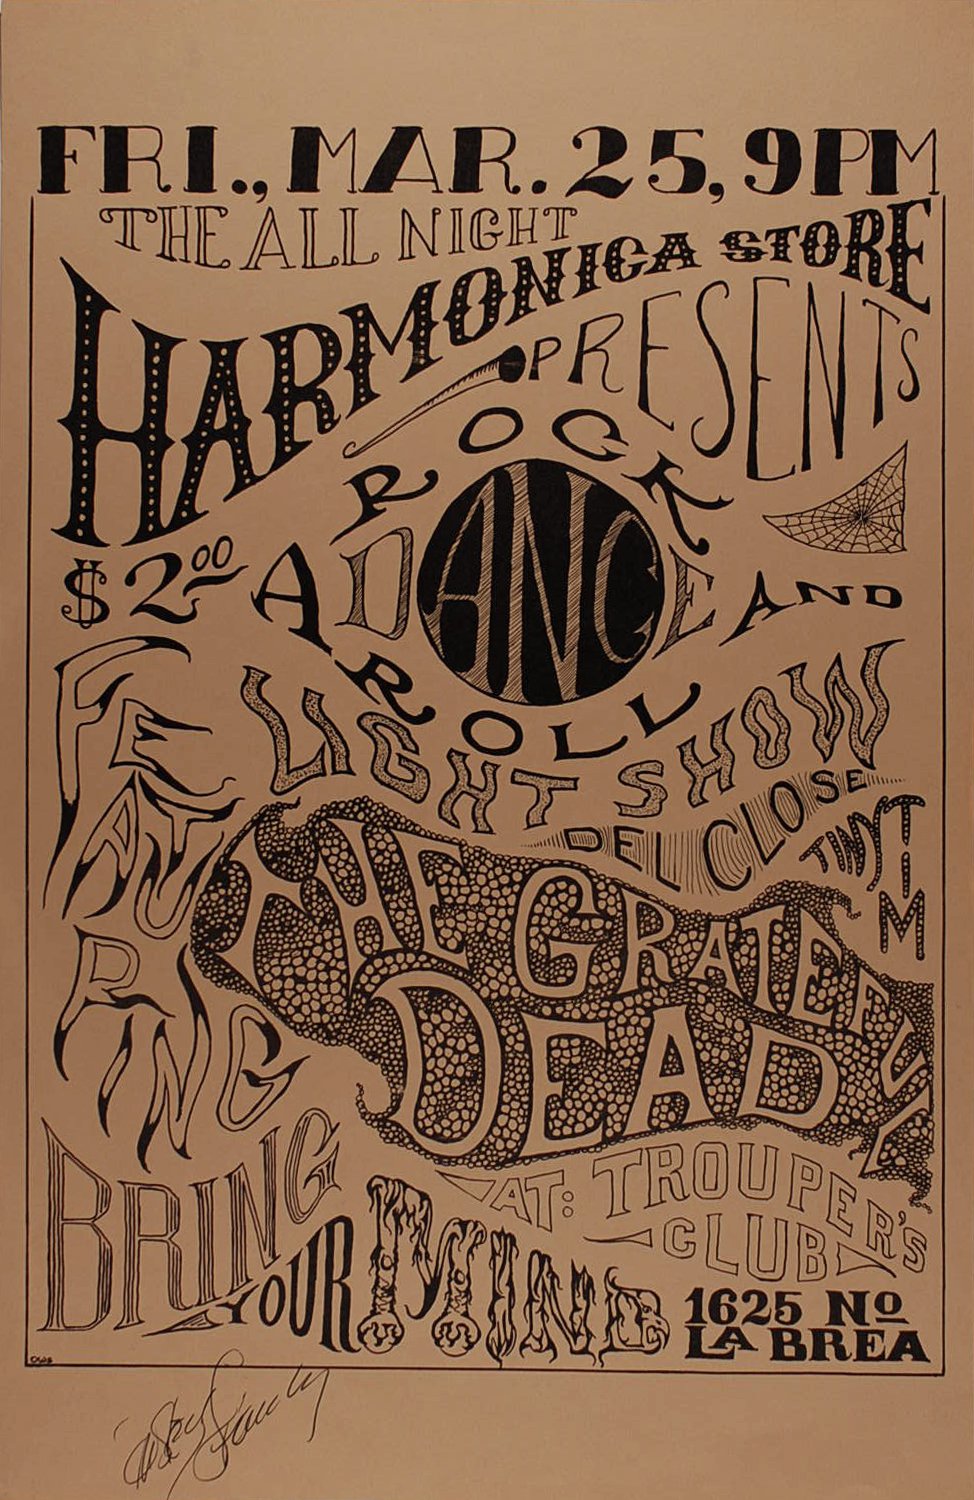 FRI., MAR. 25, 9PM
THE ALL NIGHT
HARMONICA STORE
PRESENTS
$2.00
A ROCK AND
ROLL
DANCE
LIGHT SHOW
DEL CLOSE
TINY TIM
FEATURING
THE GRATEFUL
DEAD
AT: TROUPER'S
CLUB
BRING
YOUR MIND
1625 No
LA BREA